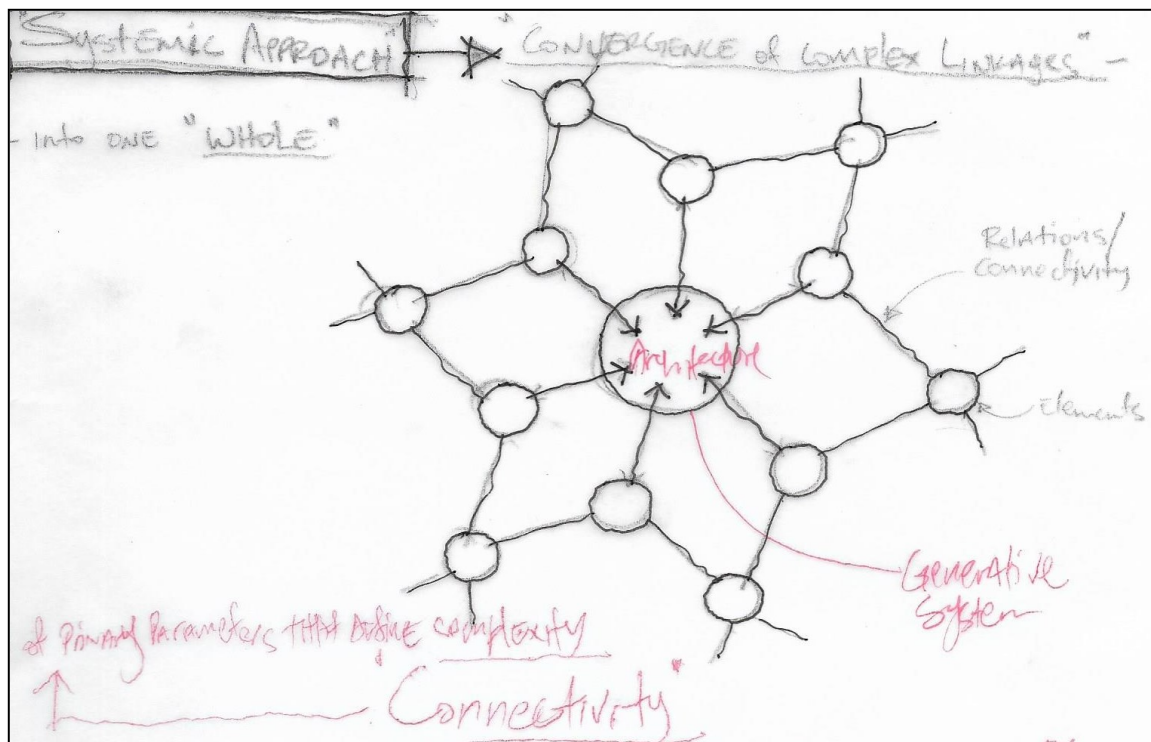 "Systemic Approach" "Convergence of Complex Linkages" -
- into one "Whole"
Relations/
Connectivity
Architecture
Elements
Generative
System
of Primary Parameters that define complexity
"Connectivity"